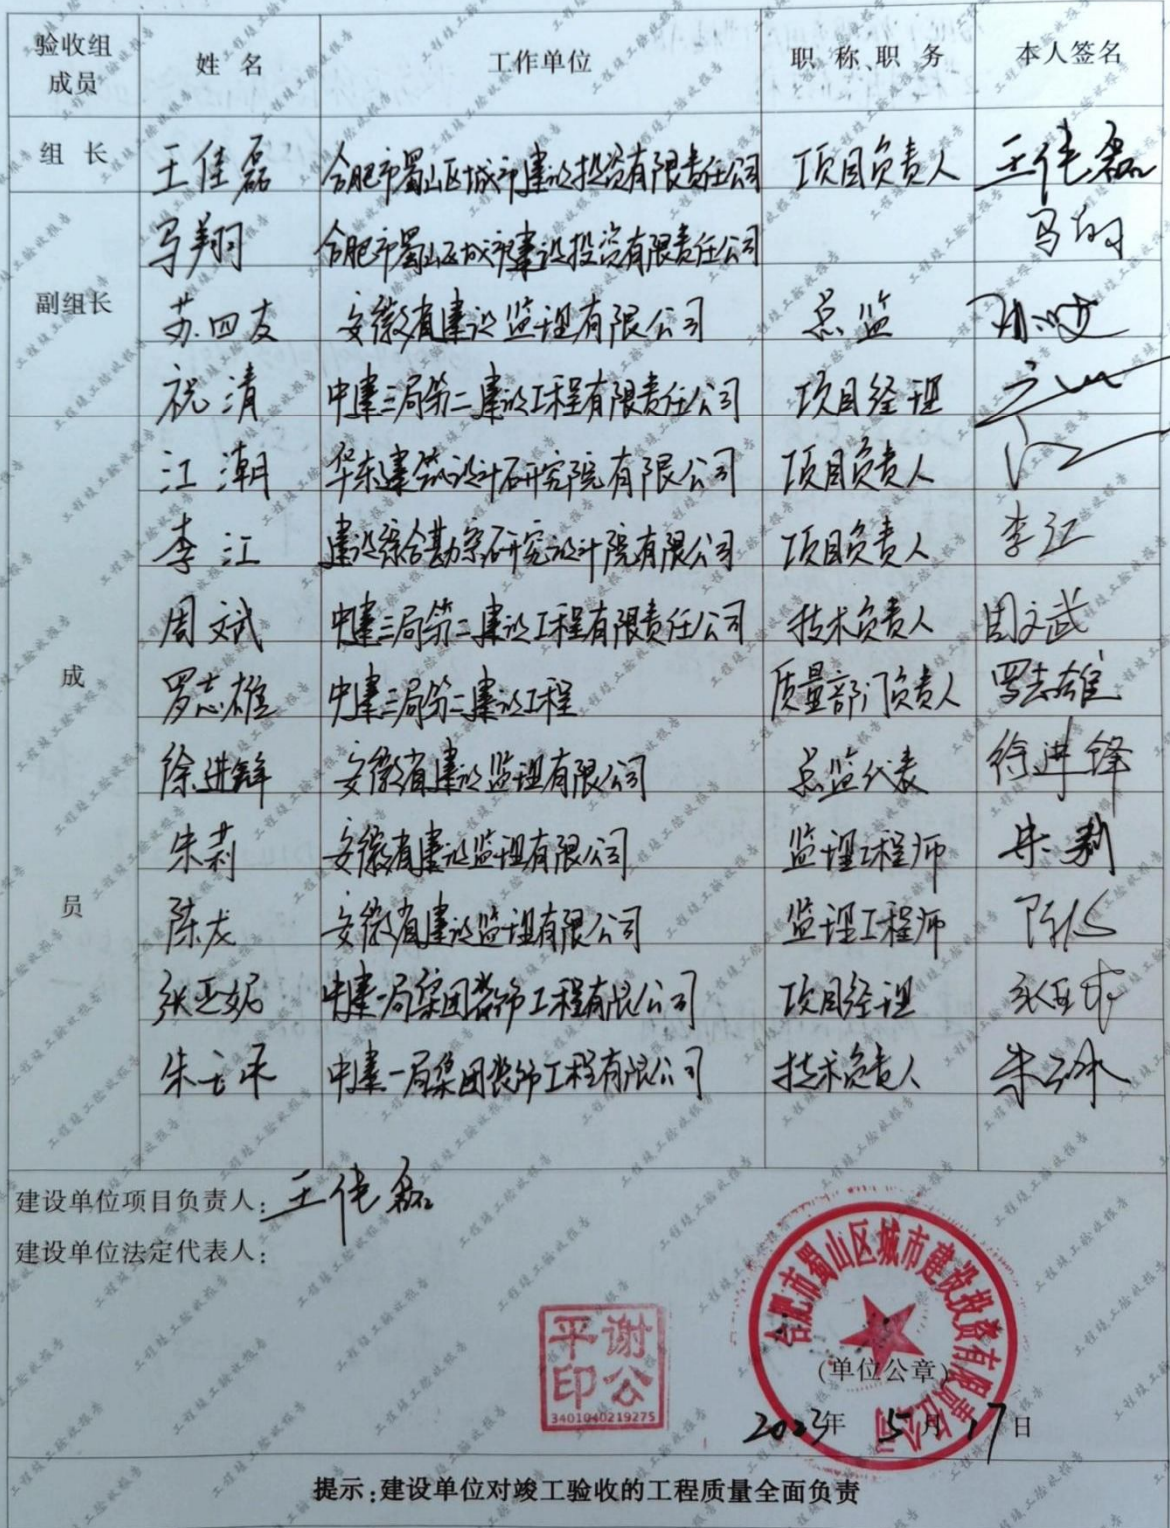 验收组成员 姓名 工作单位 职称、职务 本人签名
组长 王佳磊 合肥市蜀山区城市建设投资有限责任公司 项目负责人 王佳磊
马翔 合肥市蜀山区城市建设投资有限责任公司 马翔
副组长 苏四友 安徽省建设监理有限公司 总监
祝清 中建三局第二建设工程有限责任公司 项目经理
江潮 华东建筑设计研究院有限公司 项目负责人
李江 建设综合勘察研究设计院有限公司 项目负责人 李江
周文斌 中建三局第二建设工程有限责任公司 技术负责人 周文斌
成 罗志雄 中建三局第二建设工程 质量部门负责人 罗志雄
徐进锋 安徽省建设监理有限公司 总监代表 徐进锋
朱莉 安徽省建设监理有限公司 监理工程师 朱莉
员 陈龙 安徽省建设监理有限公司 监理工程师 陈龙
张亚妮 中建一局集团装饰工程有限公司 项目经理
朱云平 中建一局集团装饰工程有限公司 技术负责人
建设单位项目负责人：王佳磊
建设单位法定代表人：
谢公平印
3401040219275
合肥市蜀山区城市建设投资有限责任公司
（单位公章）
2023年 5月 17日
提示：建设单位对竣工验收的工程质量全面负责
工程竣工验收报告